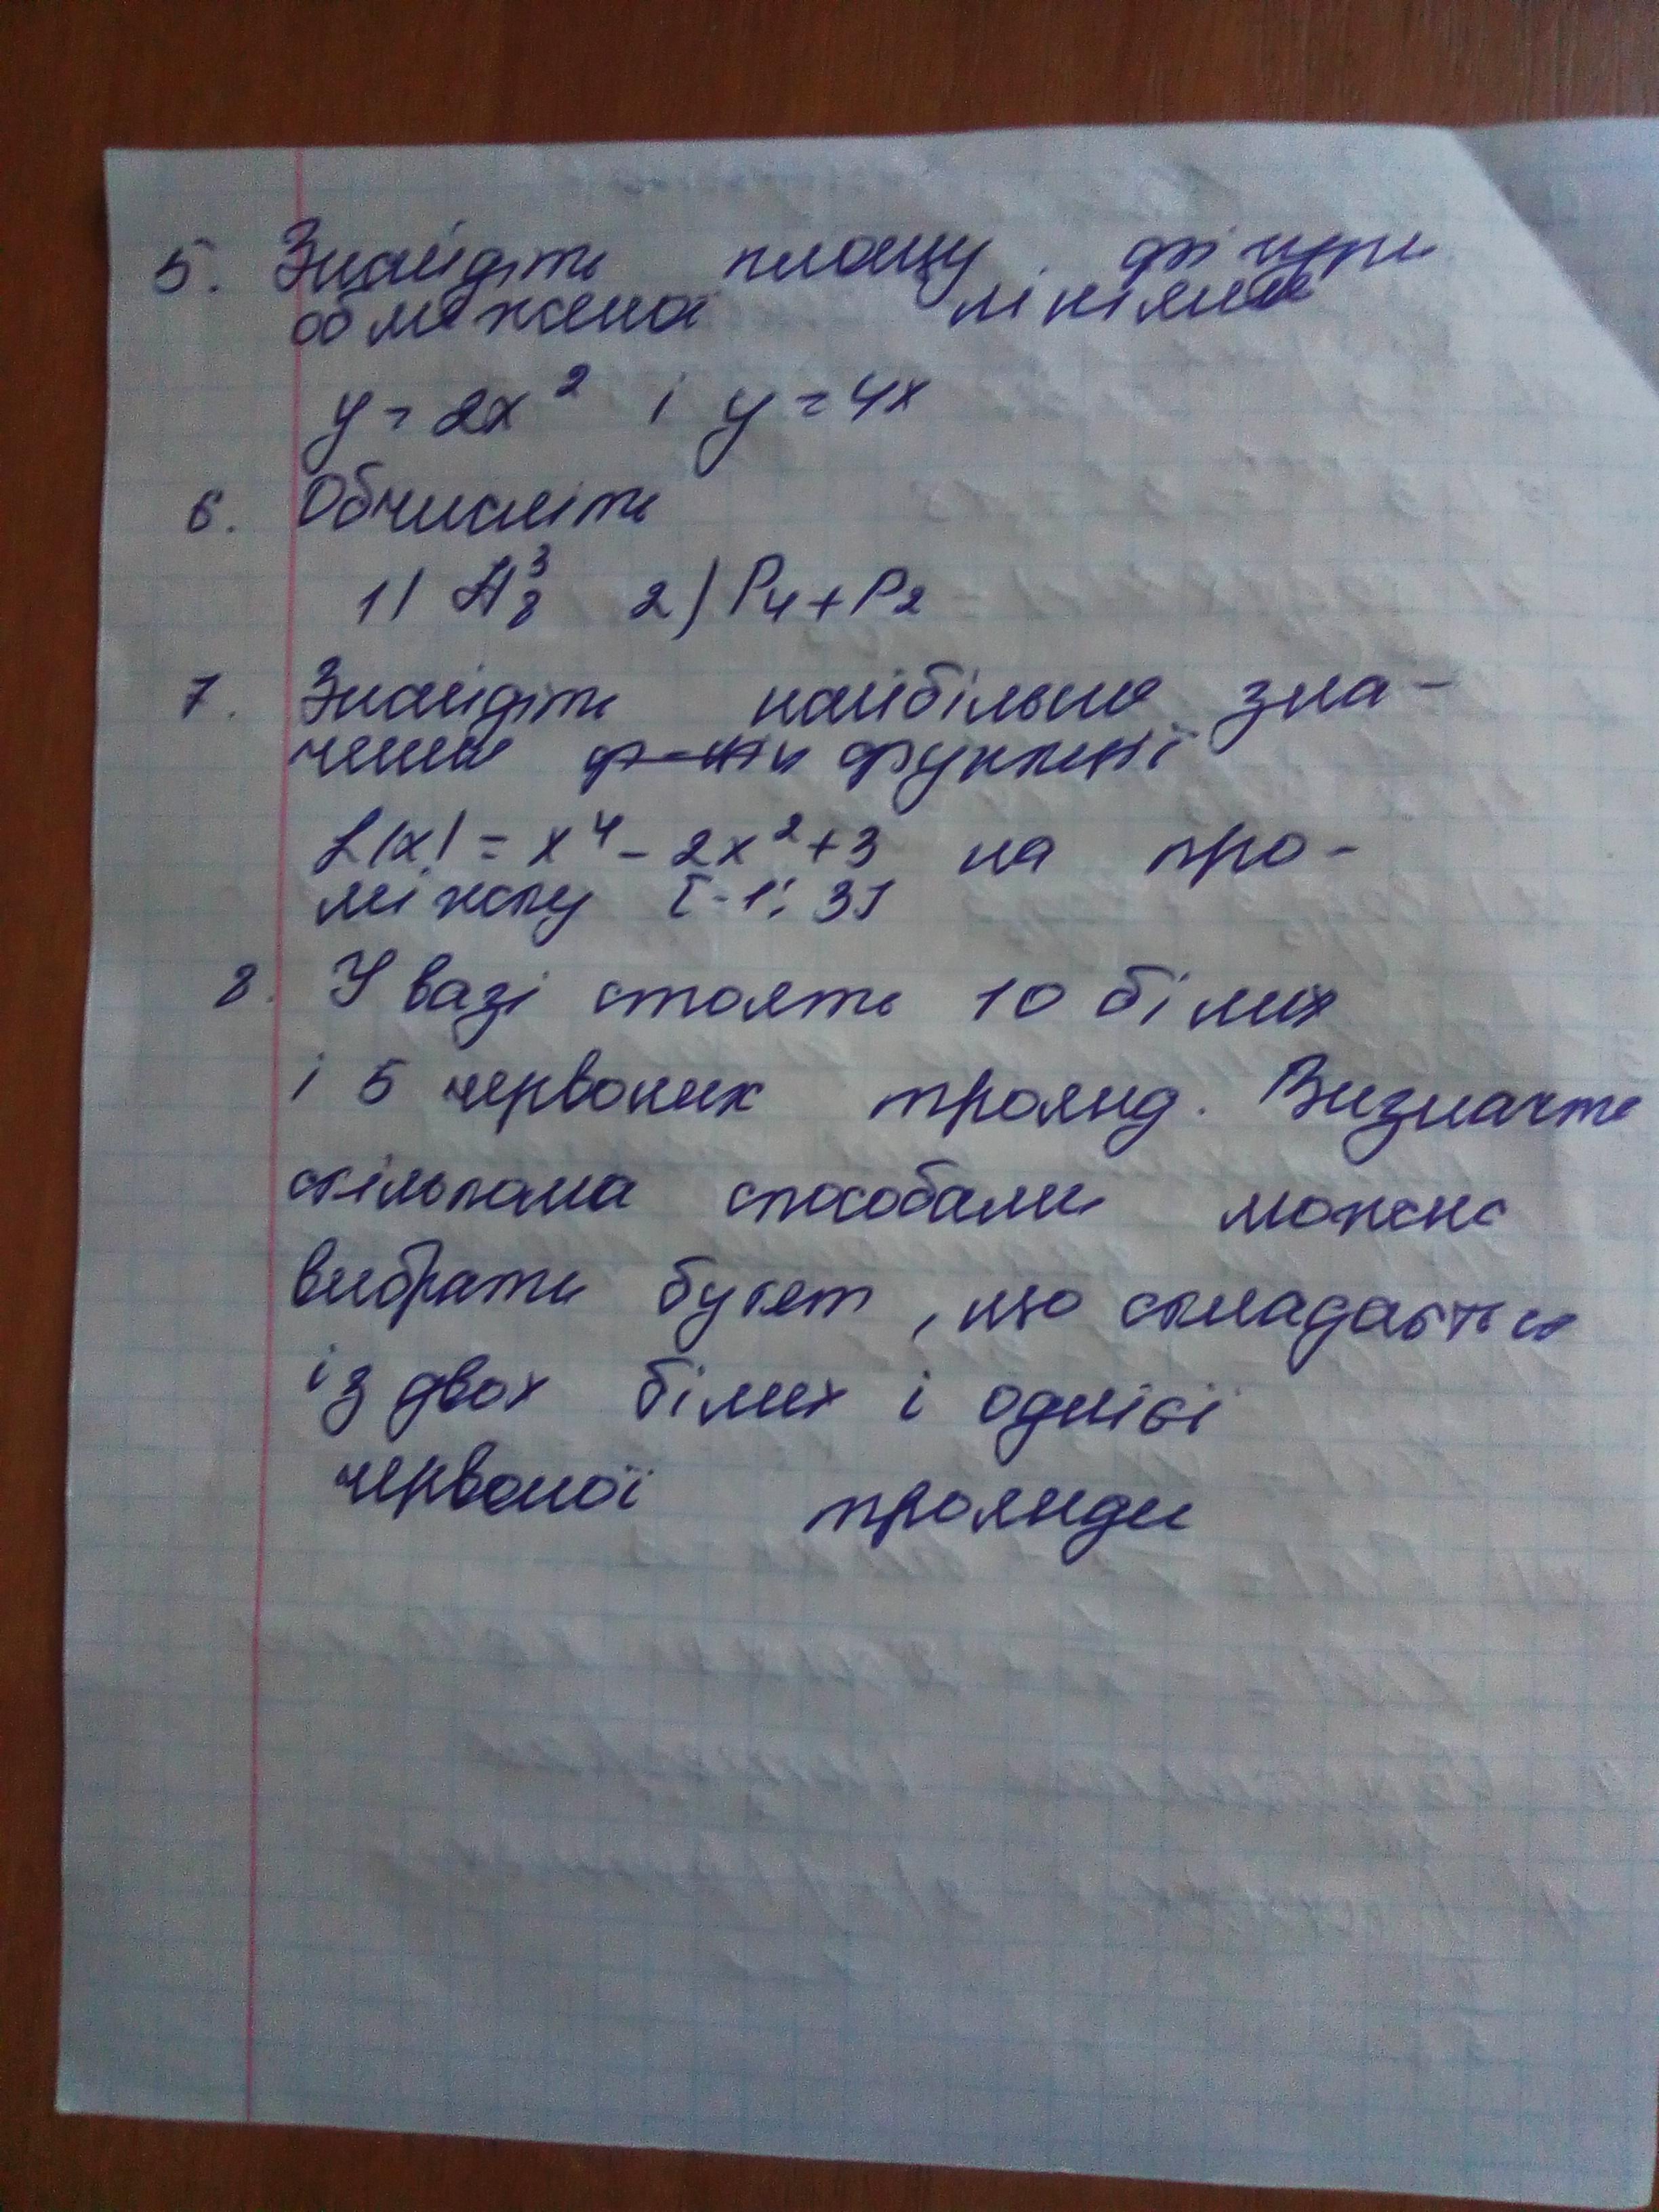 5. Знайдіть площу фігури
обмежена лініями
y = 2x² і y = 4x
6. Обчисліть
1) A₈³ 2) P₄ + P₂
7. Знайдіть найбільше зна-
чення функції
f(x) = x⁴ - 2x² + 3 на про-
міжку [-1; 3]
8. У вазі стоять 10 білих
і 5 червоних троянд. Визначте
скількома способами можна
вибрати букет, що складається
із двох білих і однієї
червоної троянди